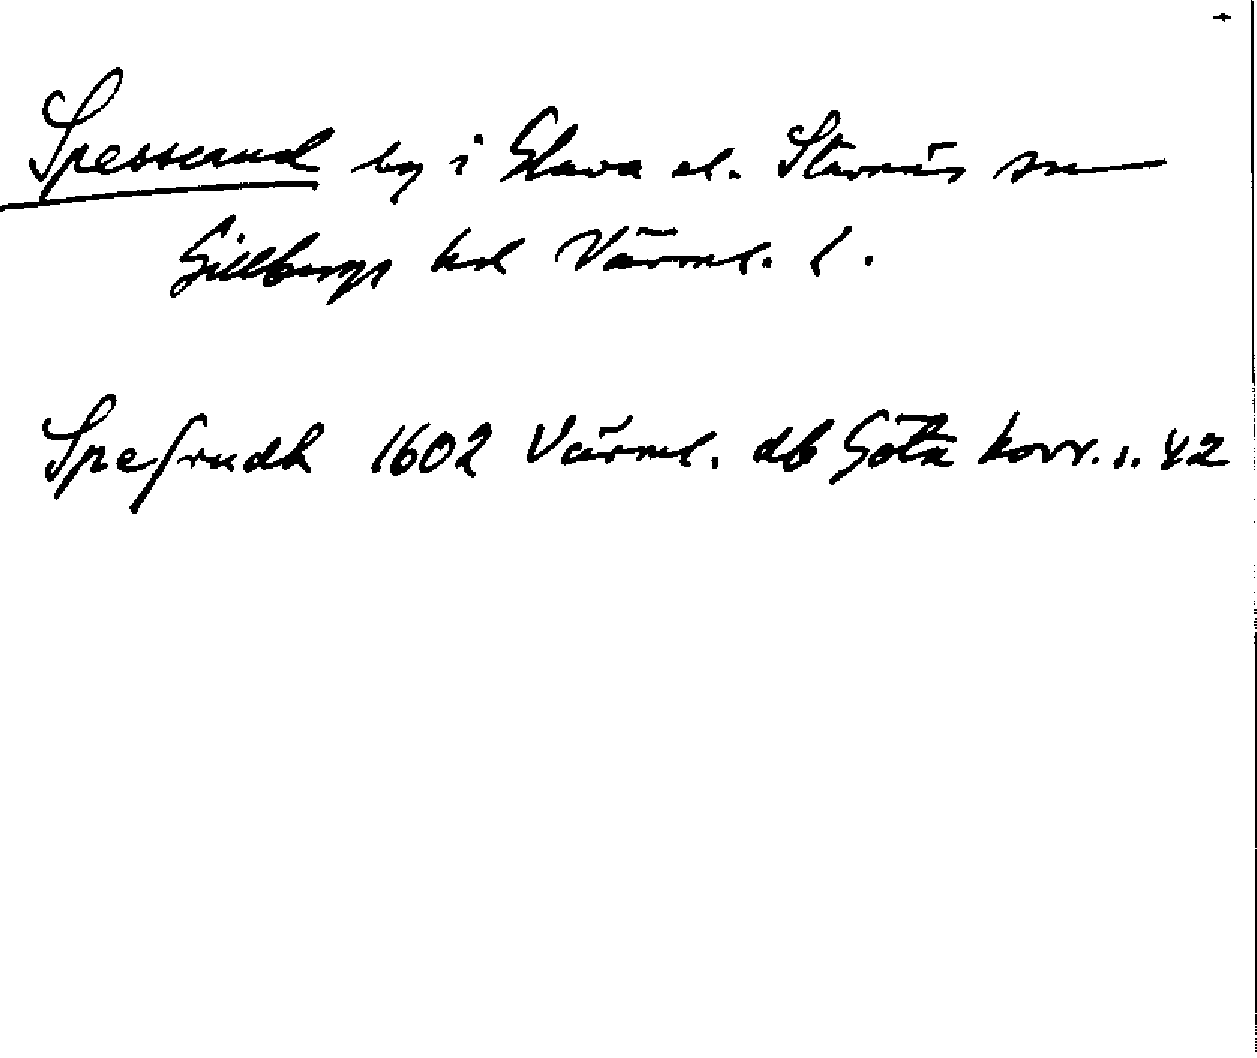 Spesserud by i Glava el. Stavnäs sn
Gillbergs hd Värml. l.
Speſrudh 1602 Värml. db Göta hovr. s. 42